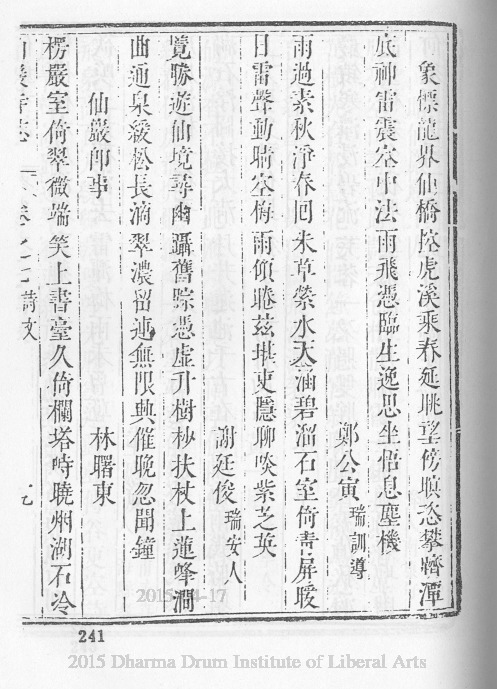 象慓龍界仙橋控虎溪乘春延眺望傍䦨恣攀躋潭
底神雷震空中法雨飛憑臨生逸思坐悟息塵機
鄭公寅 瑞訓導
雨過素秋淨春回朱草縈水天涵碧溜石室倚青屏暖
日雷聲動晴空梅雨傾睠茲堪吏隱聊啖紫芝英
謝廷俊 瑞安人
境勝遊仙境尋幽躡舊踪憑虛升樹杪扶杖上蓮峰澗
曲通泉緩松長滴翠濃留連無限興催晚忽聞鐘
仙巖即事 林曙東
楞嚴室倚翠微端笑上書臺久倚欄塔峙曉烟湖石冷
仙巖寺志 卷之七 詩文 九
241
2015-04-17
2015 Dharma Drum Institute of Liberal Arts